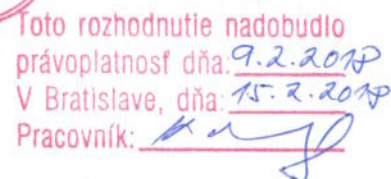 Toto rozhodnutie nadobudlo
právoplatnosť dňa: 9.2.2018
V Bratislave, dňa: 15.2.2018
Pracovník: